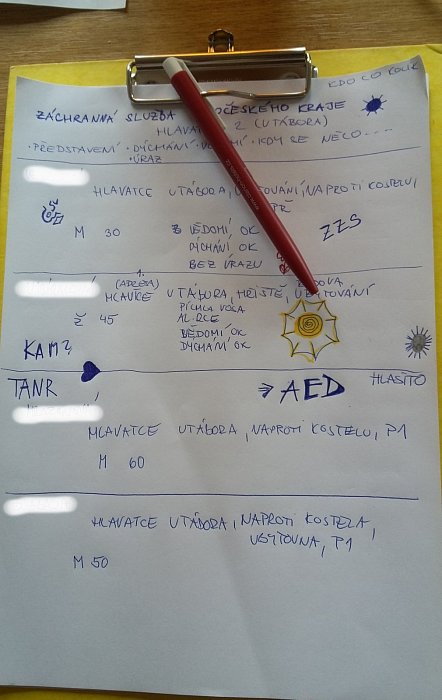 KDO CO KOLIK
ZÁCHRANNÁ SLUŽBA OČESKÉHO KRAJE
HLAVAT 2 (UTÁBORA)
• PŘEDSTAVENÍ • DÝCHÁNÍ • V MÍ • KDY SE NĚCO....
• ÚRAZ
HLAVATCE UTÁBORA, U TOVÁNÍ, NAPROTI KOSTELU,
M 30
VĚDOMÍ OK
DÝCHÁNÍ OK
BEZ ÚRAZU
ZZS
1.
(ADRESA)
UTÁBORA, HŘIŠTĚ, UBYTOVÁNÍ
Ž 45
PÍCHLA VOSA
VĚDOMÍ OK
DÝCHÁNÍ OK
KAM?
TANR
⇒ AED
HLASITO
HLAVATCE UTÁBORA, NAPROTI KOSTELU, P1
M 60
HLAVATCE UTÁBORA, NAPROTI KOSTELA,
UBYTOVNA, P1
M 50